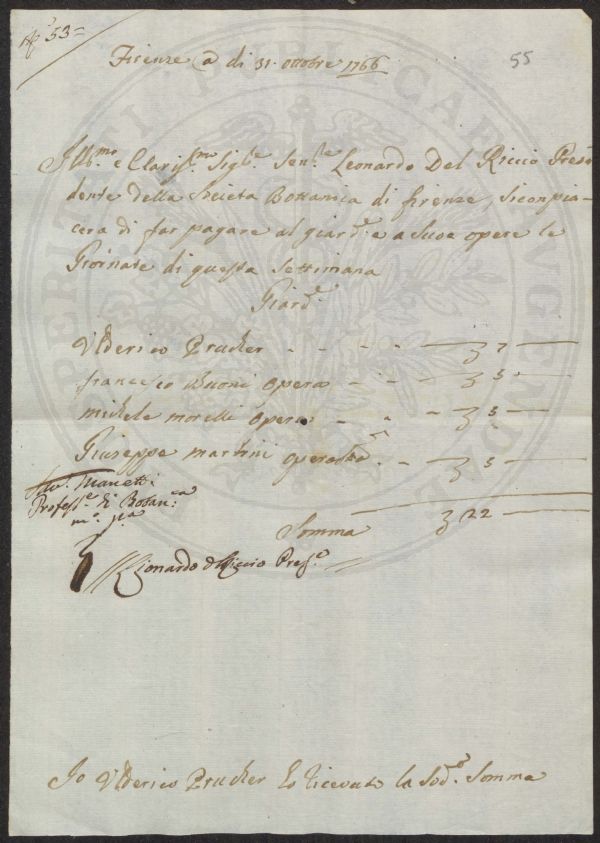 N.º 53 =
55
Firenze @ di 31. ottobre 1766
Ill.mo e Claris.mo Sig.re Sen.re Leonardo Del Riccio Presi=
dente della Società Bottanica di firenze, si conpia=
cera di far pagare al giard.e e a Sue opere le
Giornate di questa Settimana
Giard.e
Vlderico Prucker - - - - 7
francesco Buoni opera - - 5
michele morelli opera - - - 5
Giuseppe martini - - 5
Manetti
Profess.e di Botan.ca
m.o p.a
Somma 22
Lionardo del Riccio Pres.e
Io Vlderico Prucker ho riceuuto la Sod.a Somma
PERITI PUBLICAE AUGENDAE